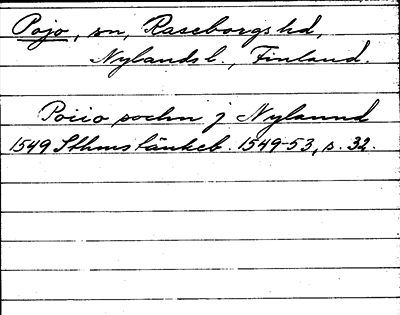 Pojo, sn, Raseborgs hd,
Nylands l., Finland.
Poiio sochn j Nylannd
1549 Sthms tänkeb. 1549-53, s. 32.